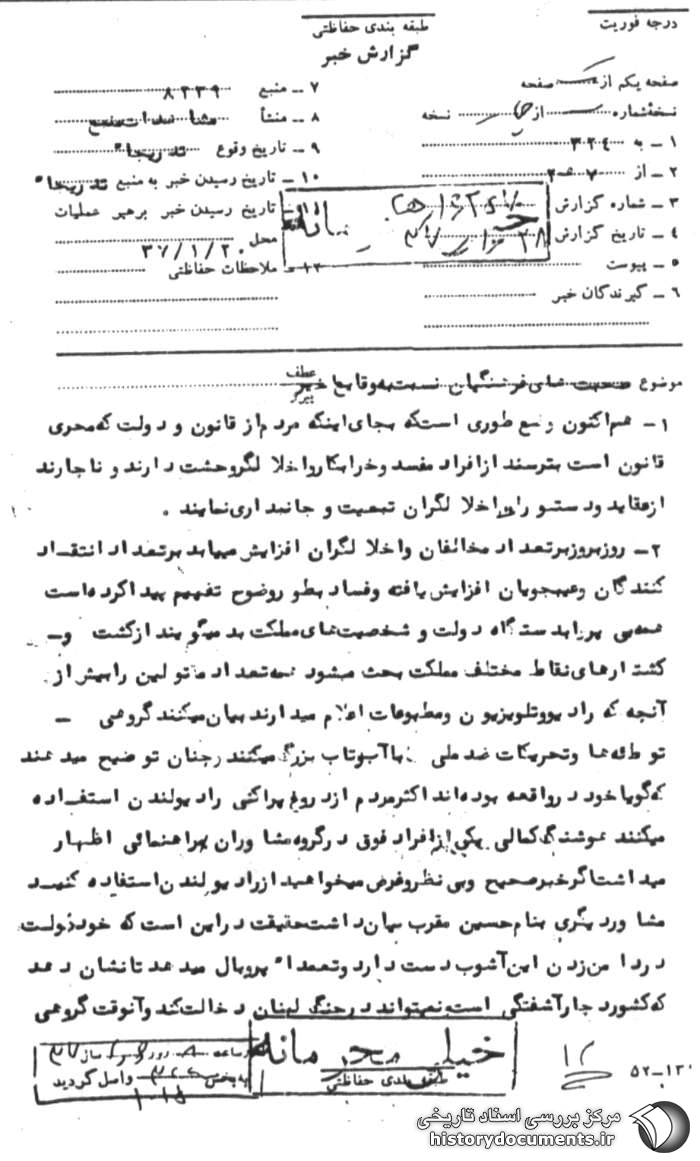 درجه فوریت
طبقه بندی حفاظتی
گزارش خبر
صفحه یکم از یک صفحه
نسخهٔ شماره از نسخه
۱ ــ به ۳۲٤
۲ ــ از
۳ ــ شماره گزارش
٤ ــ تاریخ گزارش
٥ ــ پیوست
٦ ــ گیرندگان خبر
۷ ــ منبع ۸۲۳۹
۸ ــ منشأ مشاهدات منبع
۹ ــ تاریخ وقوع تدریجا"
۱۰ ــ تاریخ رسیدن خبر به منبع تدریجا"
۱۱ ــ تاریخ رسیدن خبر برهبر عملیات
محل ۳۷/۱/۲۰
۱۲ ــ ملاحظات حفاظتی
موضوع صحبت های فرهنگیان نسبت به وقایع اخیر
عطف
پیرو
۱ــ هم اکنون وضع طوری است که بجای اینکه مردم از قانون و دولت که مجری
قانون است بترسند از افراد مفسد و خرابکار و اخلا لگر وحشت دارند و ناچارند
از عقاید و دستورات اخلا لگران تبعیت و جانبداری نمایند .
۲ــ روز بروز بر تعداد مخالفان و اخلا لگران افزایش مییابد بر تعداد انتقاد
کنندگان و عیبجویان افزایش یافته و فساد بطور وضوح تعمیم پیدا کرده است
همه بی پروا بدستگاه دولت و شخصیت های مملکت بد میگویند از کشت و ــ
کشتارهای نقاط مختلف مملکت بحث میشود همه تعداد مقتولین را بیش از
آنچه که رادیو و تلویزیون و مطبوعات اعلام میدارند بیان میکنند گروهی ــ
توطئه ها و تحریکات ضد ملی با آب و تاب بزرگ میکنند و چنان توضیح میدهند
که گویا خود در واقعه بوده اند اکثر مردم از دروغ پراکنی رادیو لندن استفاده
میکنند هوشنگ کمالی یکی از افراد فوق در گروه مشاوران راهنمائی اظهار
میداشت اگر خبر صحیح و بی نظر و غرض میخواهید از رادیو لندن استفاده کنید
مشاور دیگری بنام حسین مقرب بیان داشت حقیقت در این است که خود دولت
در دامن زدن این آشوب دست دارد و تعمدا" پر و بال میدهد تا نشان دهد
که کشور دچار آشفتگی است نمیتواند در جنگ لبنان دخالت کند و آنوقت گروهی
خیلی محرمانه
طبقه بندی حفاظتی
ساعت روز
به بخش واصل گردید
۱۲
۵۲ــ۱۳۰
مرکز بررسی اسناد تاریخی
historydocuments.ir